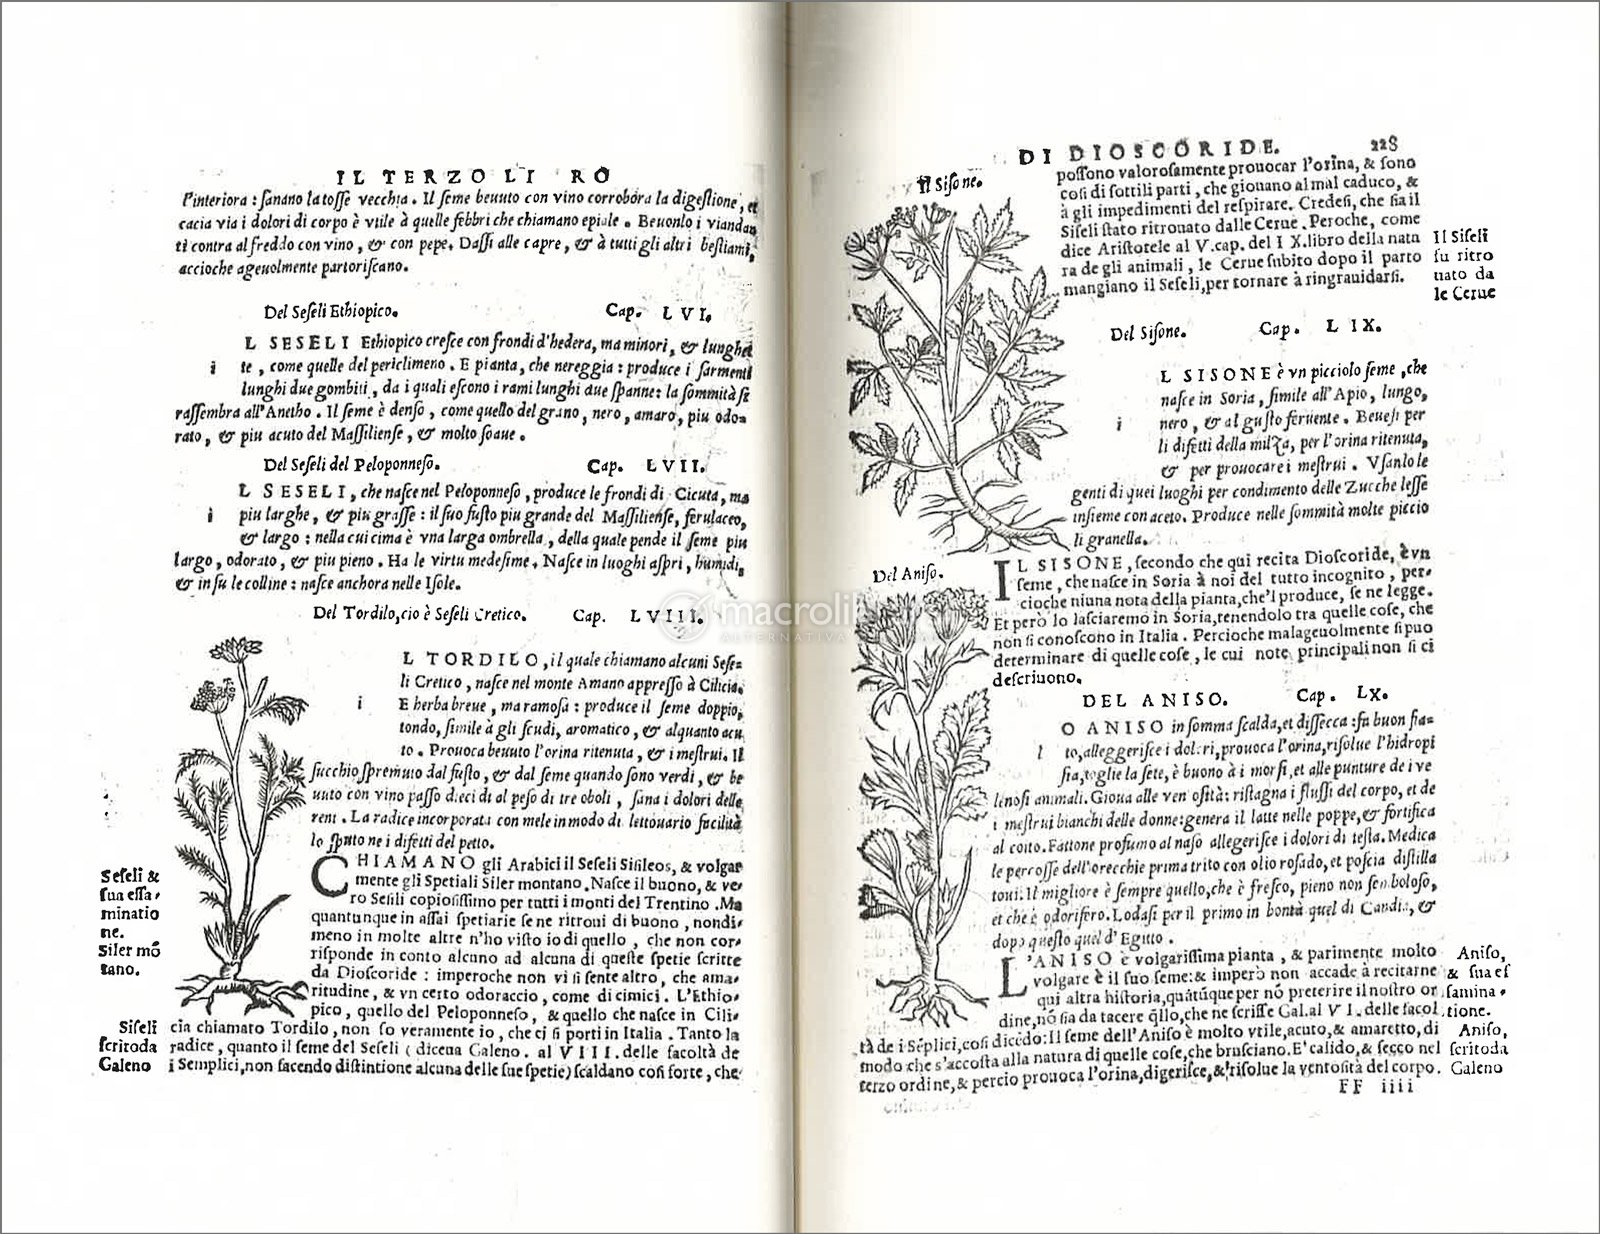 IL TERZO LI RO
l'interiora : sanano la tosse vecchia . Il seme beuuto con vino corrobora la digestione, et
cacia via i dolori di corpo è vtile à quelle febbri che chiamano epiale . Beuonlo i viandan
ti contra al freddo con vino , & con pepe. Dassi alle capre , & à tutti gli altri bestiami,
accioche ageuolmente partoriscano.
Del Seseli Ethiopico. Cap. LVI.
L SESELI Ethiopico cresce con frondi d'hedera, ma minori, & lunghet
te , come quelle del periclimeno . E pianta, che nereggia : produce i sarmenti
lunghi due gombiti, da i quali escono i rami lunghi due spanne: la sommità si
rassembra all'Anetho . Il seme è denso , come quello del grano, nero, amaro, piu odo-
rato, & piu acuto del Massiliense, & molto soaue .
Del Seseli del Peloponneso. Cap. LVII.
L SESELI, che nasce nel Peloponneso , produce le frondi di Cicuta, ma
i piu larghe, & piu grasse : il suo fusto piu grande del Massiliense, ferulaceo,
& largo : nella cui cima è vna larga ombrella , della quale pende il seme piu
largo, odorato, & piu pieno . Ha le virtu medesime. Nasce in luoghi aspri, humidi,
& in su le colline : nasce anchora nelle Isole.
Del Tordilo, cio è Seseli Cretico. Cap. LVIII.
L TORDILO, il quale chiamano alcuni Sese-
li Cretico , nasce nel monte Amano appresso à Cilicia.
i E herba breue , ma ramosa : produce il seme doppio,
tondo, simile à gli scudi, aromatico , & alquanto acu
to . Prouoca beuuto l'orina ritenuta , & i mestrui. Il
succhio spremuto dal fusto , & dal seme quando sono verdi , & be
uuto con vino passo dieci dì al peso di tre oboli , sana i dolori delle
reni . La radice incorporata con mele in modo di lettouario facilità
lo sputo ne i difetti del petto.
CHIAMANO gli Arabici il Seseli Sisileos, & volgar
mente gli Spetiali Siler montano. Nasce il buono, & ve-
ro Sesili copiosissimo per tutti i monti del Trentino . Ma
quantunque in assai spetiarie se ne ritroui di buono , nondi-
meno in molte altre n'ho visto io di quello , che non cor-
risponde in conto alcuno ad alcuna di queste spetie scritte
da Dioscoride : imperoche non vi si sente altro, che ama-
ritudine, & vn certo odoraccio, come di cimici . L'Ethio-
pico, quello del Peloponneso, & quello che nasce in Cili-
cia chiamato Tordilo, non so veramente io , che ci si porti in Italia . Tanto la
radice , quanto il seme del Seseli (diceua Galeno . al VIII. delle facoltà de
i Semplici, non facendo distintione alcuna delle sue spetie) scaldano cosi forte , che
Seseli &
sua essa-
minatio
ne.
Siler mō
tano.
Siseli
scritoda
Galeno
DI DIOSCORIDE. 228
Il Sisone.
possono valorosamente prouocar l'orina, & sono
cosi di sottili parti , che giouano al mal caduco, &
à gli impedimenti del respirare. Credesi, che sia il
Siseli stato ritrouato dalle Cerue . Peroche, come
dice Aristotele al V. cap. del IX. libro della natu
ra de gli animali , le Cerue subito dopo il parto
mangiano il Seseli, per tornare à ringrauidarsi.
Il Siseli
fu ritro
uato da
le Cerue
Del Sisone. Cap. LIX.
L SISONE è vn picciolo seme , che
nasce in Soria, simile all'Apio, lungo,
i nero, & al gusto feruente . Beuesi per
li difetti della milza, per l'orina ritenuta,
& per prouocare i mestrui . Vsanlo le
genti di quei luoghi per condimento delle Zucche lesse
insieme con aceto. Produce nelle sommità molte piccio
li granella.
IL SISONE, secondo che qui recita Dioscoride, è vn
seme , che nasce in Soria à noi del tutto incognito , per-
cioche niuna nota della pianta, che'l produce, se ne legge.
Et però lo lasciaremo in Soria, tenendolo tra quelle cose, che
non si conoscono in Italia . Percioche malageuolmente si puo
determinare di quelle cose , le cui note principali non si ci
descriuono.
Del Aniso.
DEL ANISO. Cap. LX.
O ANISO in somma scalda, et dissecca : fa buon fia-
l to, alleggerisce i dolori, prouoca l'orina, risolue l'hidropi
sia, toglie la sete, è buono à i morsi, et alle punture de i ve
lenosi animali. Gioua alle ventosità: ristagna i flussi del corpo, et de
i mestrui bianchi delle donne: genera il latte nelle poppe, & fortifica
al coito. Fattone profumo al naso allegerisce i dolori di testa. Medica
le percosse dell'orecchie prima trito con olio rosado, et poscia distilla
toui. Il migliore è sempre quello, che è fresco, pieno non semboloso,
et che è odorifero. Lodasi per il primo in bontà quel di Candia, &
dopo questo quel d'Egitto .
L'ANISO è volgarissima pianta , & parimente molto
volgare è il suo seme: & imperò non accade à recitarne
qui altra historia, quātūque per nō preterire il nostro or
dine, nō sia da tacere q̄llo, che ne scrisse Gal. al VI. delle facol
tà de i Sēplici, cosi dicēdo: Il seme dell'Aniso è molto vtile, acuto, & amaretto, di
modo che s'accosta alla natura di quelle cose, che brusciano. E' calido, & secco nel
terzo ordine, & percio prouoca l'orina, digerisce, & risolue la ventosità del corpo.
Aniso,
& sua es
samina-
tione.
Aniso,
scritoda
Galeno
FF iiii
macrolibros
ALTERNATIVA